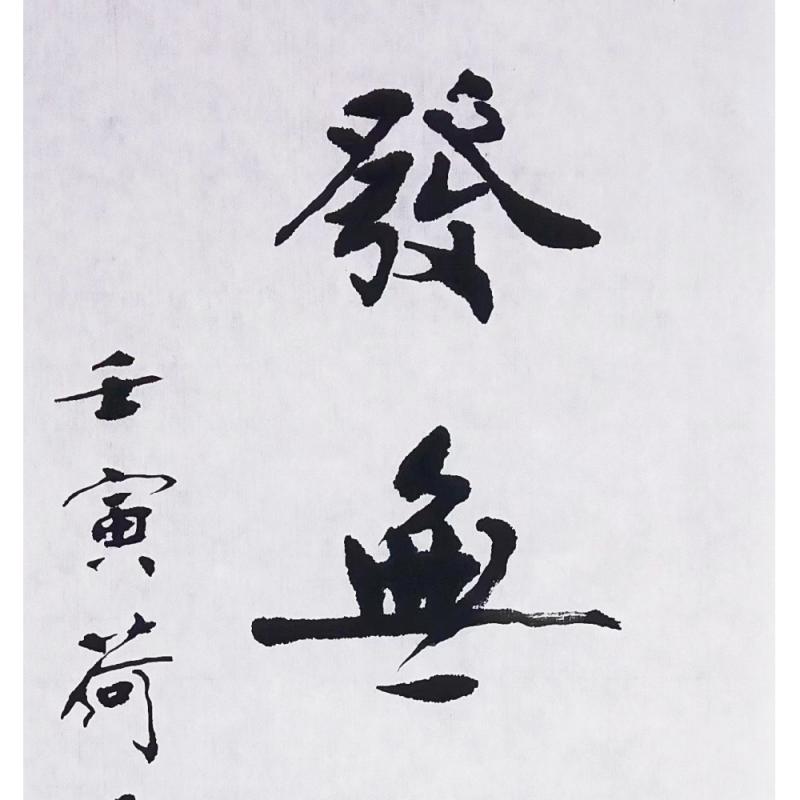 發無
壬寅荷